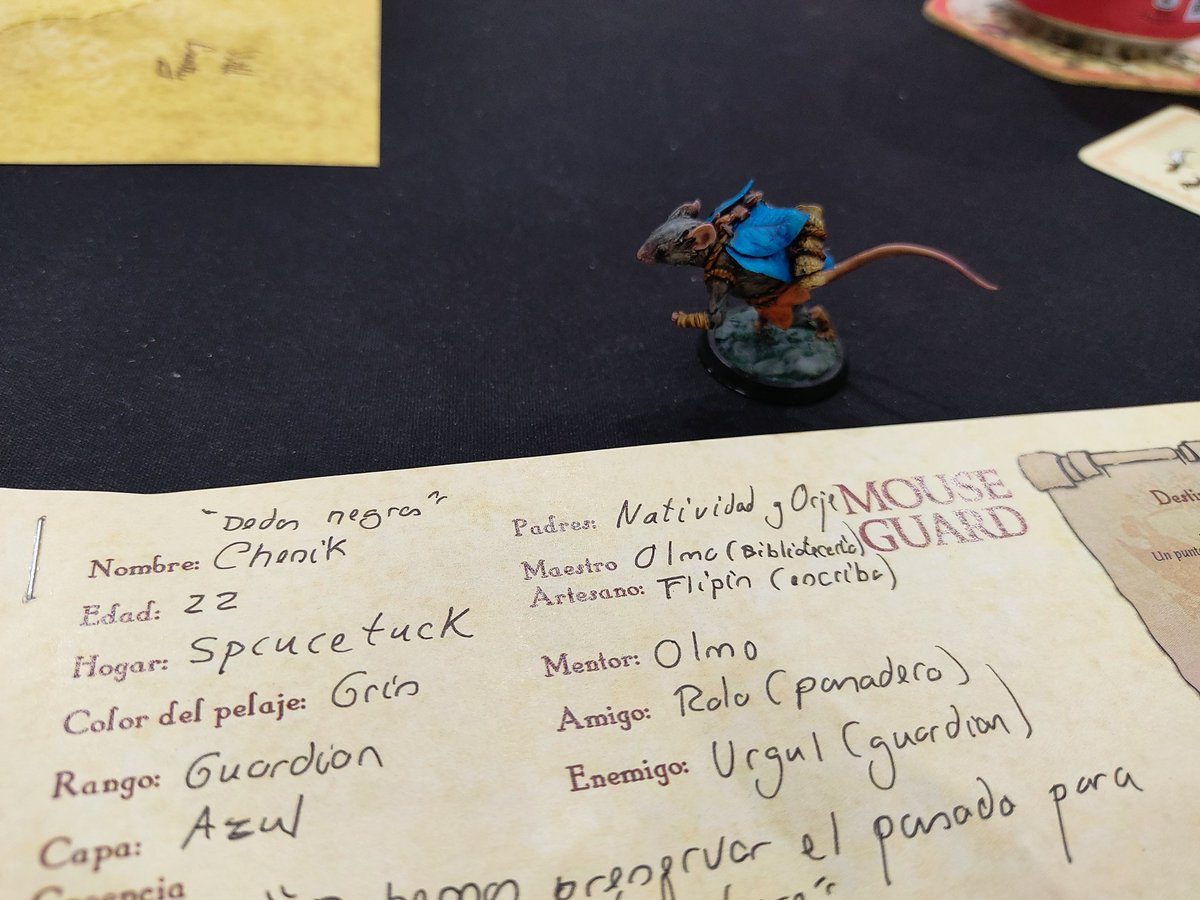 "Dedos negros"
Nombre: Chenik
Edad: 22
Hogar: Sprucetuck
Color del pelaje: Gris
Rango: Guardian
Capa: Azul
Creencia
debemos preservar el pasado para
Padres: Natividad y Orje
Maestro Olmo (Bibliotecario)
Artesano: Flipin (escriba)
Mentor: Olmo
Amigo: Rolo (panadero)
Enemigo: Urgul (guardian)
MOUSE
GUARD
Desti
Un punt